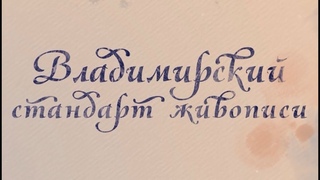 Владимирский
стандарт живописи